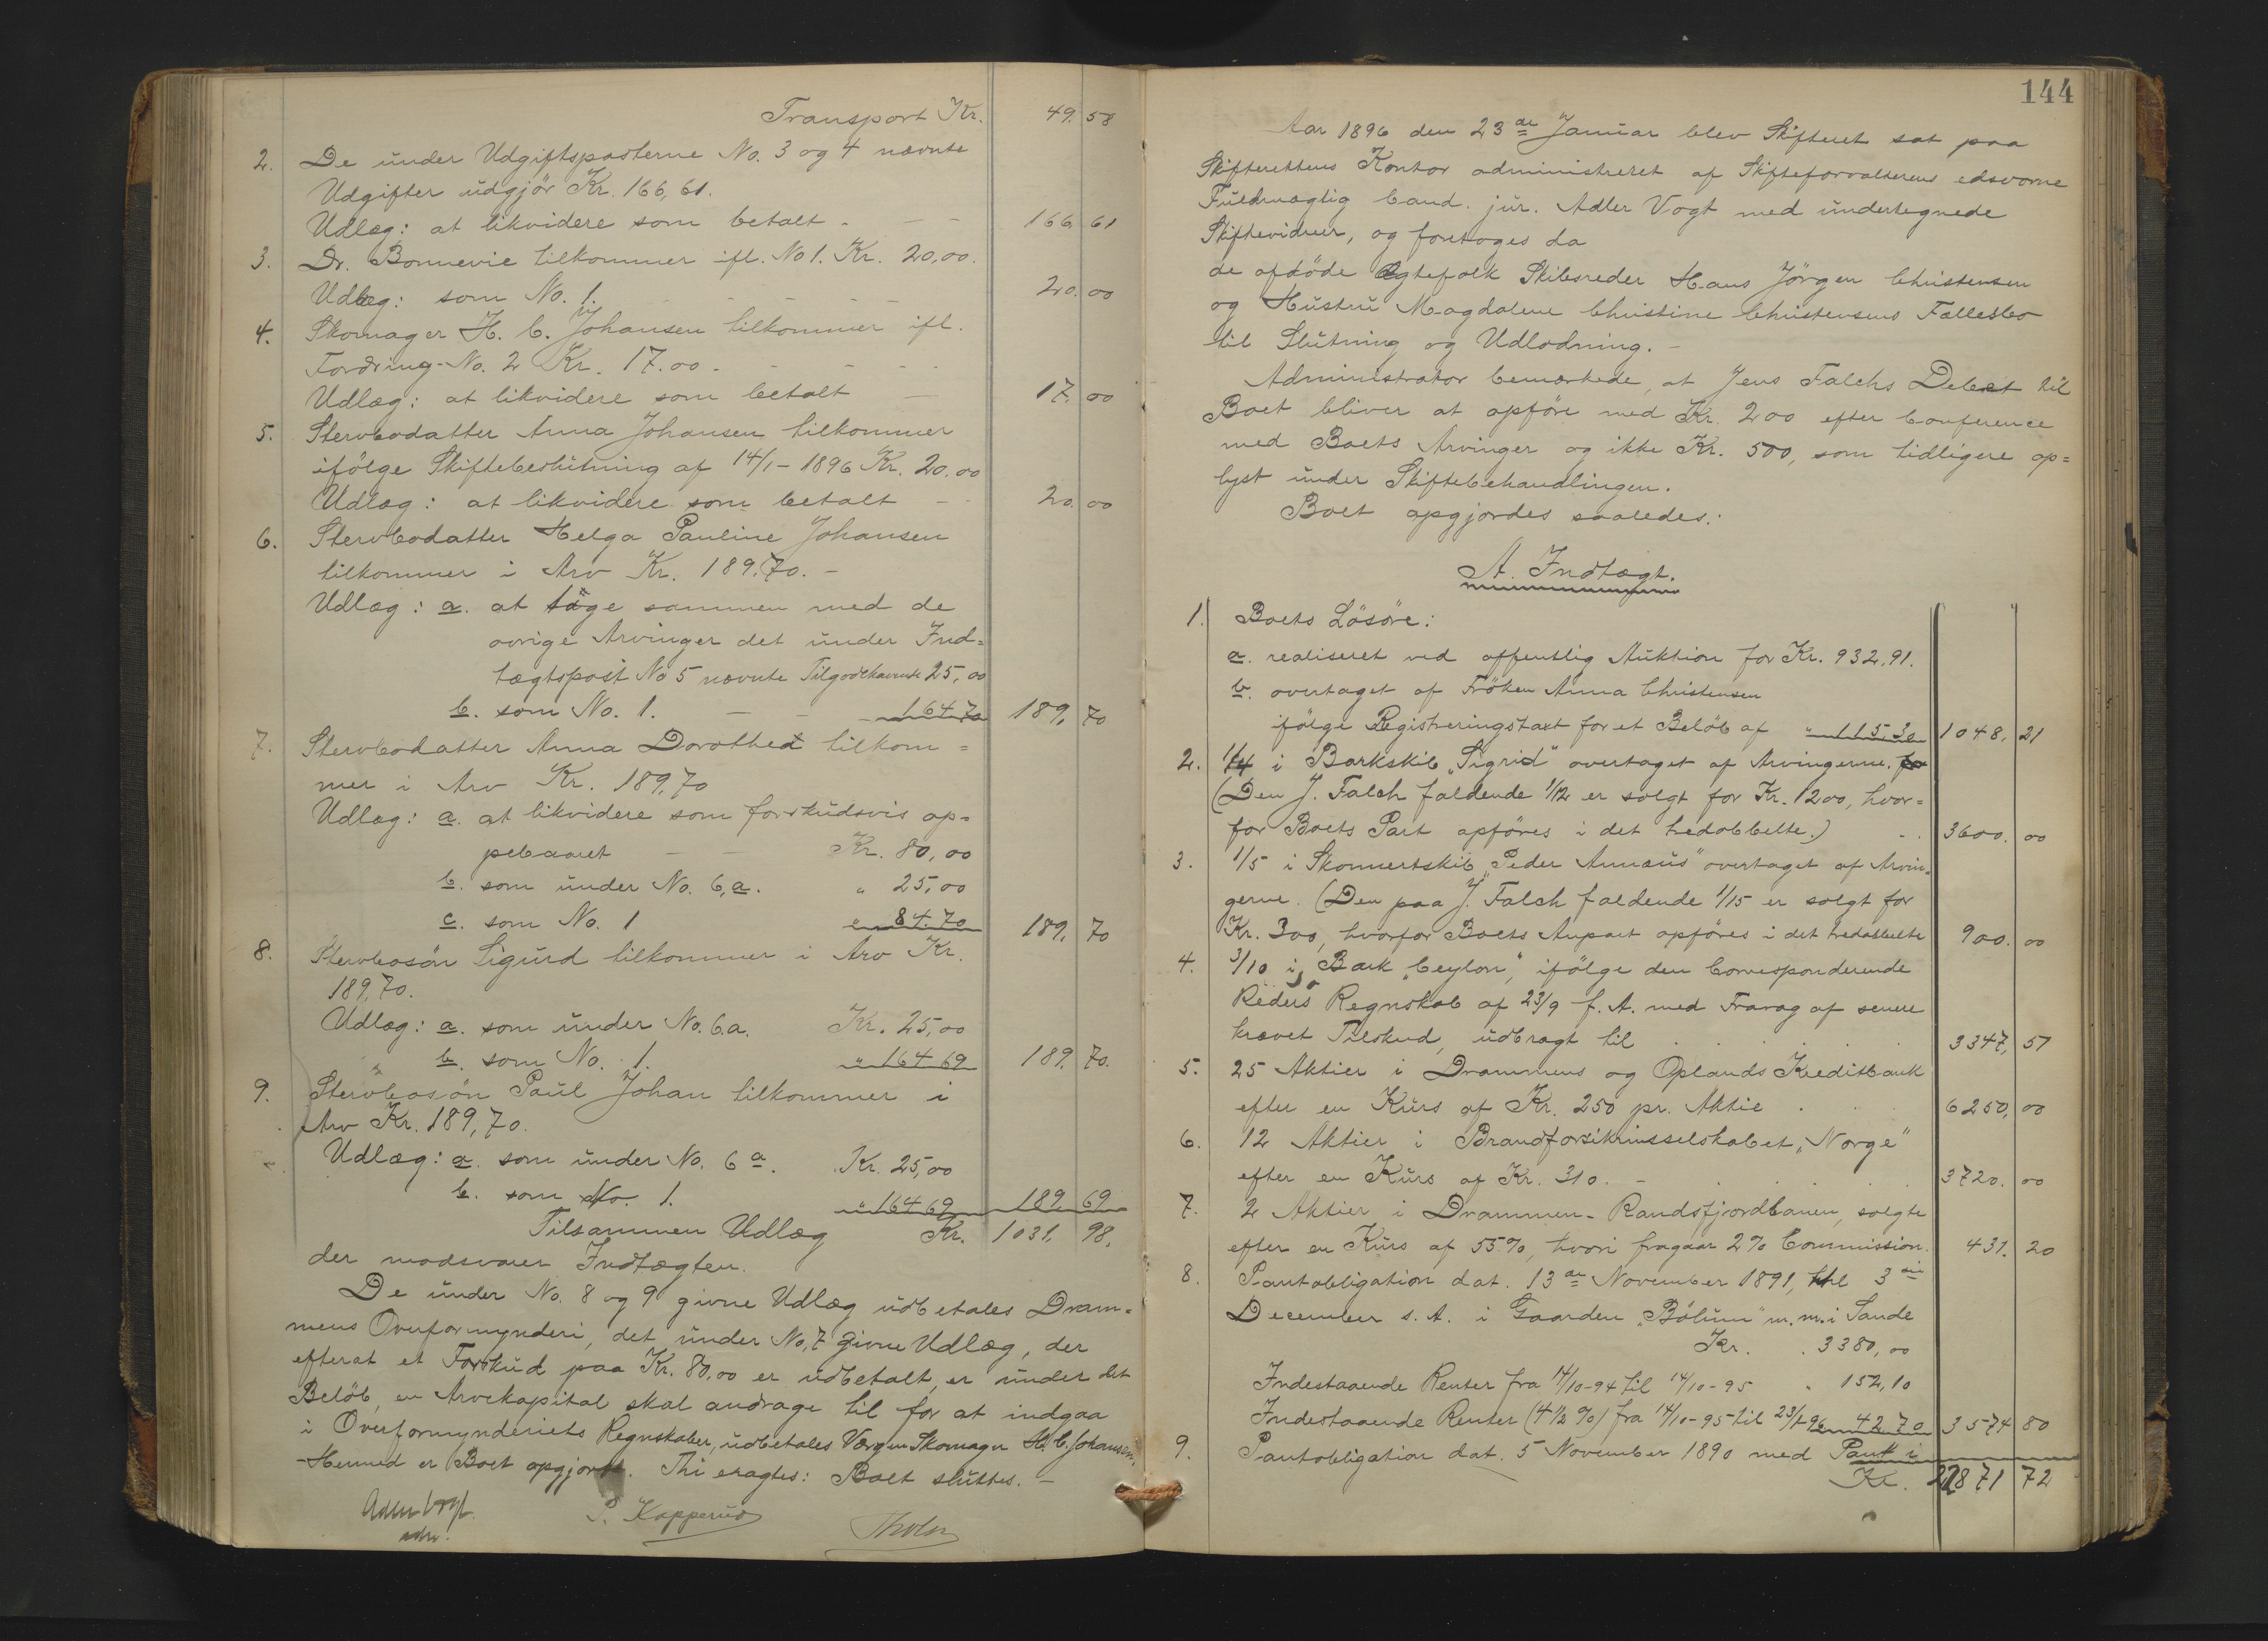 Transport Kr. 49. 58
2. De under Udgiftsposterne No. 3 og 4 nævnte
Udgifter udgjør Kr. 166,61.
Udlæg: at likvidere som betalt - - - 166. 61
3. Dr. Bonnevie tilkommer ifl. No 1. Kr. 20,00.
Udlæg: som No. 1. - - - - - 20. 00
4. Skomager H. C. Johansen tilkommer ifl.
Fordring-No. 2 Kr. 17.00. - - - -
Udlæg: at likvidere som betalt - 17. 00
5. Stervbodatter Anna Johansen tilkommer
ifölge Skiftebeslutning af 14/1-1896 Kr. 20.00
Udlæg: at likvidere som betalt - - 20. 00
6. Stervbodatter Helga Pauline Johansen
tilkommer i Arv Kr. 189.70. -
Udlæg: a. at tage sammen med de
øvrige Arvinger det under Ind=
tægtspost No 5 nævnte Tilgodehavende 25,00
b. som No. 1. - - - 164.70 189. 70
7. Stervbodatter Anna Dorothea tilkom=
mer i Arv Kr. 189,70
Udlæg: a. at likvidere som forskudsvis op=
pebaaret - - Kr. 80,00
b. som under No. 6,a. " 25,00
c. som No. 1 " 84.70 189. 70
8. Stervbosön Sigurd tilkommer i Arv Kr.
189,70.
Udlæg: a. som under No. 6.a. Kr. 25,00
b. som No. 1. " 164 69 189. 70.
9. Stervbosön Paul Johan tilkommer i
Arv Kr. 189,70.
Udlæg: a. som under No. 6 a. Kr. 25,00
b. som No. 1. " 164 69 189. 69
Tilsammen Udlæg Kr. 1031. 98.
der modsvarer Indtægten.
De under No. 8 og 9 givne Udlæg udbetales Dram=
mens Overformynderi, det under No. 7 givne Udlæg, der
efterat et Forskud paa Kr. 80.00 er udbetalt, er under det
Beløb, en Arvekapital skal andrage til for at indgaa
i Overformynderiets Regnskaber, udbetales Værgen Skomager H. C. Johansen.
Hermed er Boet opgjort. Thi eragtes: Boet sluttes. -
Adler Vogt.
P. Kopperud
144
Aar 1896 den 23de Januar blev Skifteret sat paa
Skifterettens Kontor administreret af Skifteforvalterens edsvorne
Fuldmægtig Cand. jur. Adler Vogt med undertegnede
Skiftevidner, og foretoges da
de afdöde Ægtefolk Skibsreder Hans Jörgen Christensen
og Hustru Magdalene Christine Christensens Fællesbo
til Slutning og Udlodning. -
Administrator bemærkede, at Jens Falchs Debet til
Boet bliver at opföre med Kr. 200 efter Conference
med Boets Arvinger og ikke Kr. 500, som tidligere op=
lyst under Skiftebehandlingen.
Boet opgjordes saaledes:
A. Indtægt.
1. Boets Lösöre:
a. realiseret ved offentlig Auktion for Kr. 932.91.
b. overtaget af Fröken Anna Christensen
ifölge Registreringstaxt for et Belöb af " 115.30 1048. 21
2. 1/4 i Barkskib "Sigrid" overtaget af Arvingerne. for
(Den J. Falch faldende 1/12 er solgt for Kr. 1200, hvor=
for Boets Part opföres i det tredobbelte.) - . 3600. 00
3. 1/5 i Skonnertskib "Peder Annæus" overtaget af Arvin=
gerne. (Den paa J. Falch faldende 1/15 er solgt for
Kr. 300, hvorfor Boets Anpart opföres i det tredobbelte 900. 00
4. 3/10 i Bark "Ceylon", ifölge den Corresponderende
Reders Regnskab af 23/9 f. A. med Fradrag af senere
krævet Tilskud, udbragt til . . . . 3347, 51
5. 25 Aktier i Drammens og Oplands Kreditbank
efter en Kurs af Kr. 250 pr. Aktie . . . 6250, 00
6. 12 Aktier i Brandforsikrinsselskabet "Norge"
efter en Kurs af Kr. 310. - . . . . 3720. 00
7. 2 Aktier i Drammen-Randsfjordbanen, solgte
efter en Kurs af 55%, hvori fragaar 2% Commission. 431. 20
8. Pantobligation dat. 13de November 1891, thl 3die
December s. A. i Gaarden "Bölum" m. m. i Sande
Kr. . 3380,00
Indestaaende Renter fra 14/10-94 til 14/10-95 " 152,10
Indestaaende Renter (4 1/2 %) fra 14/10-95 til 23/1-96 " 42 70 3574 80
9. Pantobligation dat. 5 November 1890 med Pant i
Kr. 22871 72